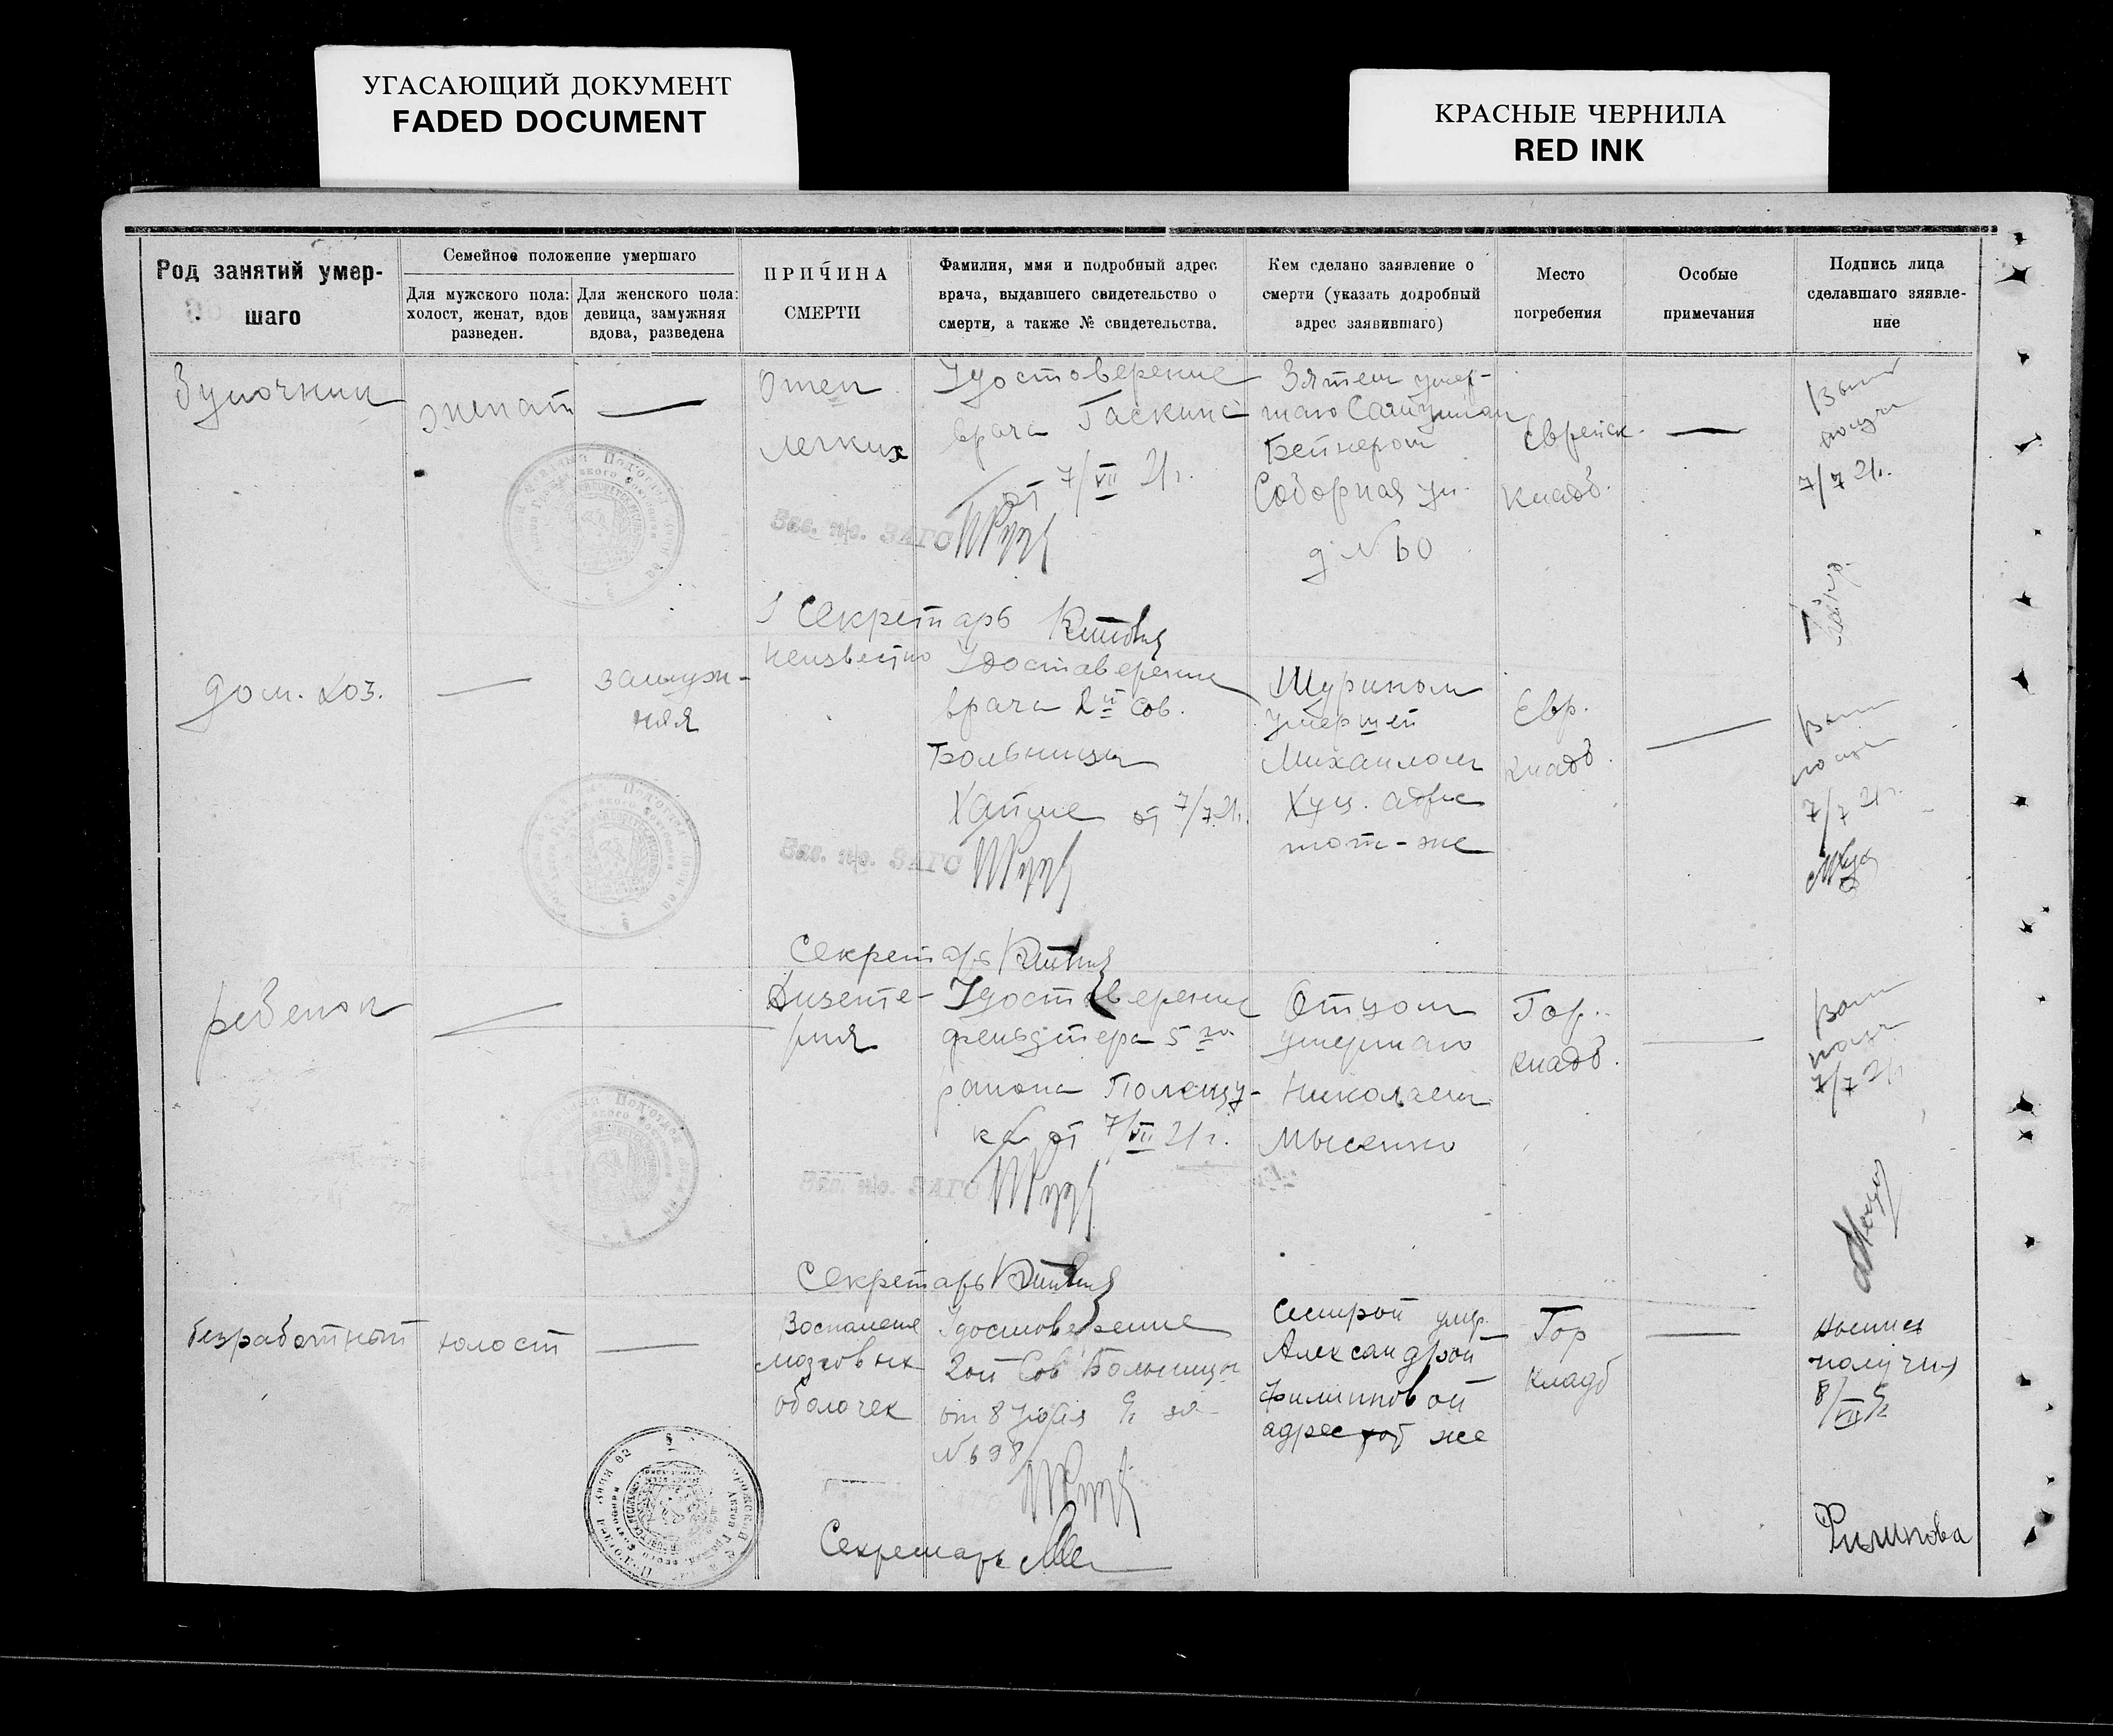 УГАСАЮЩИЙ ДОКУМЕНТ
FADED DOCUMENT
КРАСНЫЕ ЧЕРНИЛА
RED INK
Род занятий умер-
шаго
Семейное положение умершаго
Для мужского пола:
холост, женат, вдов
разведен.
Для женского пола:
девица, замужняя
вдова, разведена
ПРИЧИНА
СМЕРТИ
Фамилия, имя и подробный адрес
врача, выдавшего свидетельство о
смерти, а также № свидетельства.
Кем сделано заявление о
смерти (указать додробный
адрес заявившаго)
Место
погребения
Особые
примечания
Подпись лица
сделавшаго зяявле-
ние
Булочник
женат
—
Отек
легких
Удостоверение
врача Гаскина
от 7/VII 21г.
Зятем умер-
шаго
Бейнером
Соборная ул.
д № 60
Еврейск.
кладб.
—
7/7 21г.
Зав. п/о. ЗАГС
Секретарь
дом. хоз.
—
замуж-
няя
Неизвестно
Удостоверение
врача 2й Сов.
Больницы
от 7/7 21г.
Шурином
умершей
Михаилом
Хуц. адрес
тот-же
Евр.
кладб.
—
7/7 21г.
Зав. п/о. ЗАГС
Секретарь
ребенок
—
Дизенте-
рия
Удостоверение
фельдшера 5го
района Полещу-
ка от 7/VII 21г.
Отцом
умершаго
Николаем
Мысенко
Гор.
кладб.
—
7/7 21г.
Зав. п/о. ЗАГС
Секретарь
безработный
холост
—
Воспаление
мозговых
оболочек
Удостоверение
2ой Сов Больницы
от 8 Июля за
№ 698
Сестрой умер.
Александрой
Филипповой
адрес тот же
Гор
кладб
—
выпись
получил
8/VII
Секретарь
Филипова